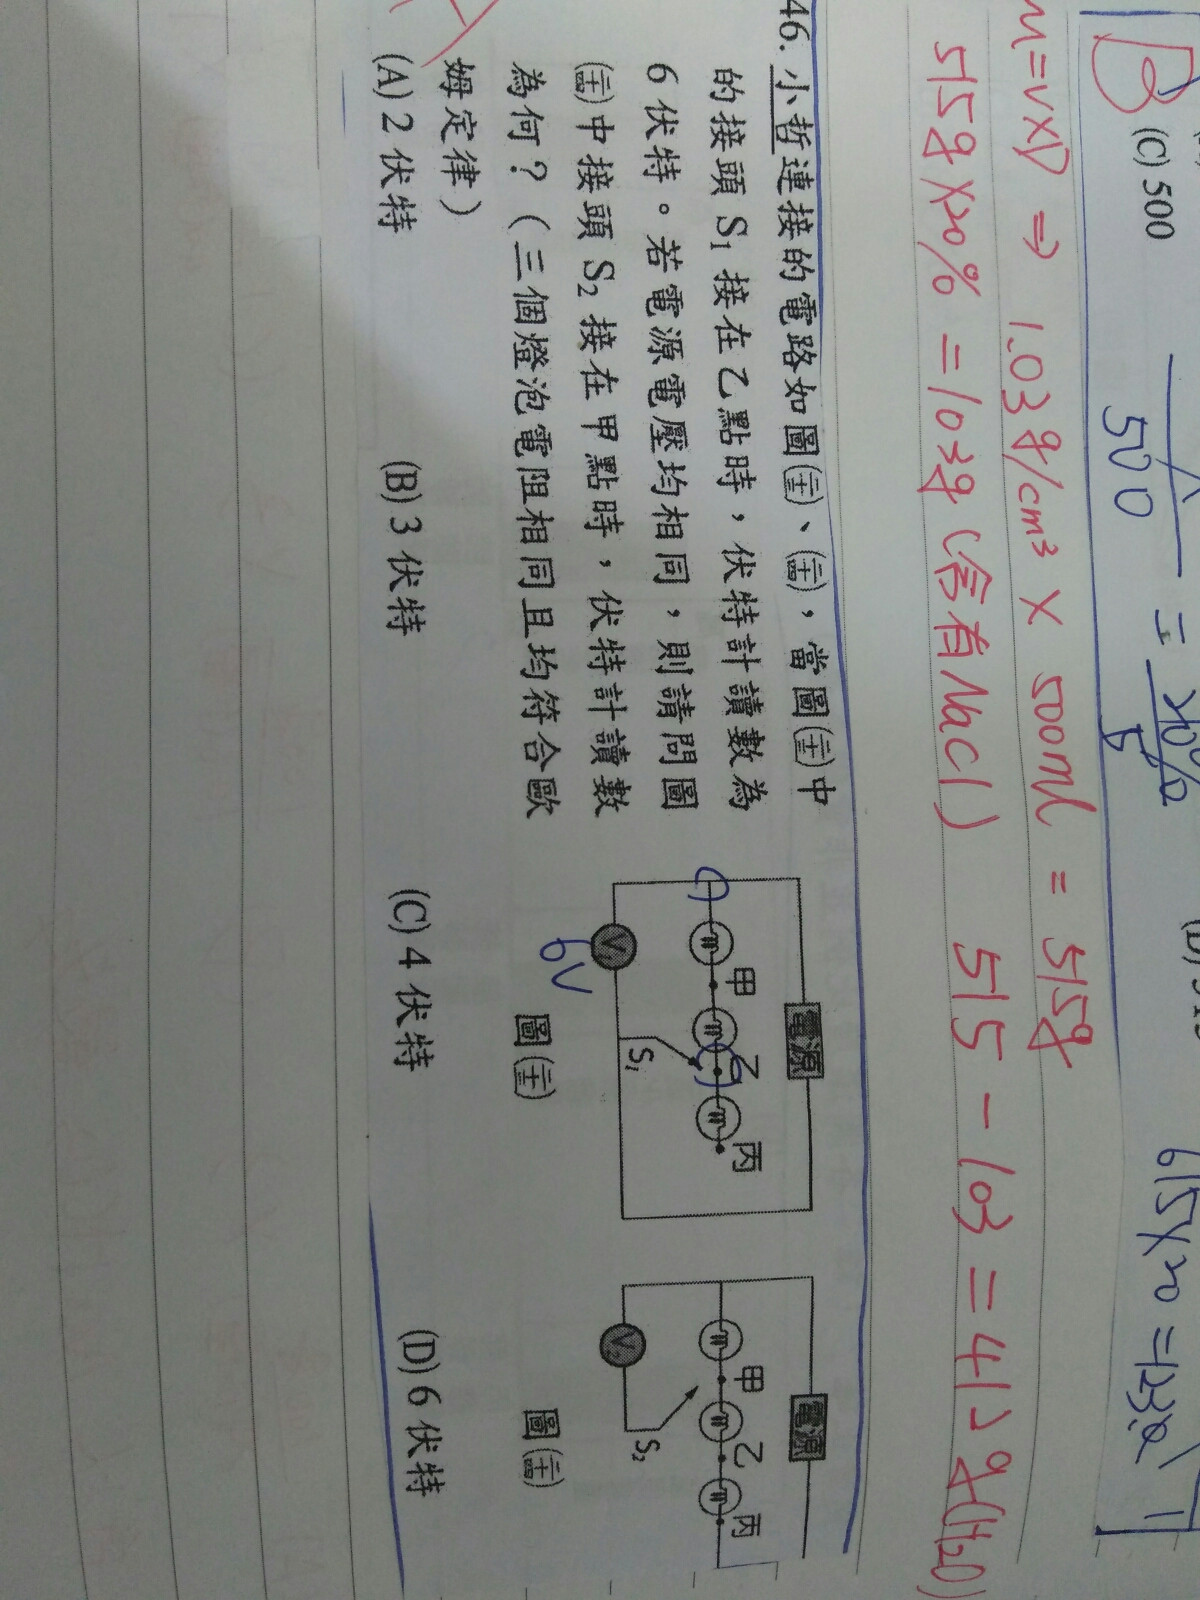 (C) 500
B
500
=
20%
615×20 = 1230
m=v×D ⇒ 1.03g/cm³ × 500ml = 515g
515g×20% = 103g (含有NaCl) 515 - 103 = 412g(H₂O)
46. 小哲連接的電路如圖(二十三)、(二十四)，當圖(二十三)中
的接頭 S₁ 接在乙點時，伏特計讀數為
6 伏特。若電源電壓均相同，則請問圖
(二十四)中接頭 S₂ 接在甲點時，伏特計讀數
為何？（三個燈泡電阻相同且均符合歐
姆定律）
電源
甲 乙 丙
S₁
V₁
6V
圖(二十三)
電源
甲 乙 丙
S₂
V₂
圖(二十四)
(A) 2 伏特 (B) 3 伏特 (C) 4 伏特 (D) 6 伏特